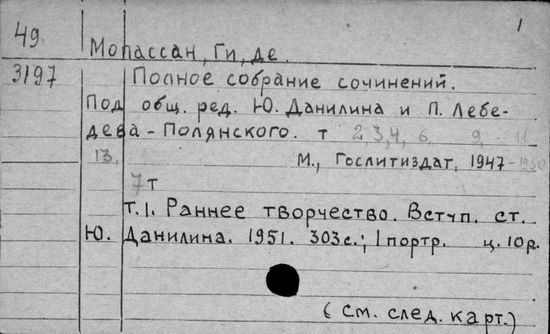 1
49 Мопассан, Ги, де.
3197 Полное собрание сочинений.
Под общ. ред. Ю. Данилина и П. Лебе-
дева-Полянского. т 2,3,4, 6, 9, 11
13, М., Гослитиздат, 1947-1950
7т
Т.1. Раннее творчество. Вступ. ст.
Ю. Данилина. 1951. 303с.; 1 портр. ц. 10р.
(см. след. карт.)